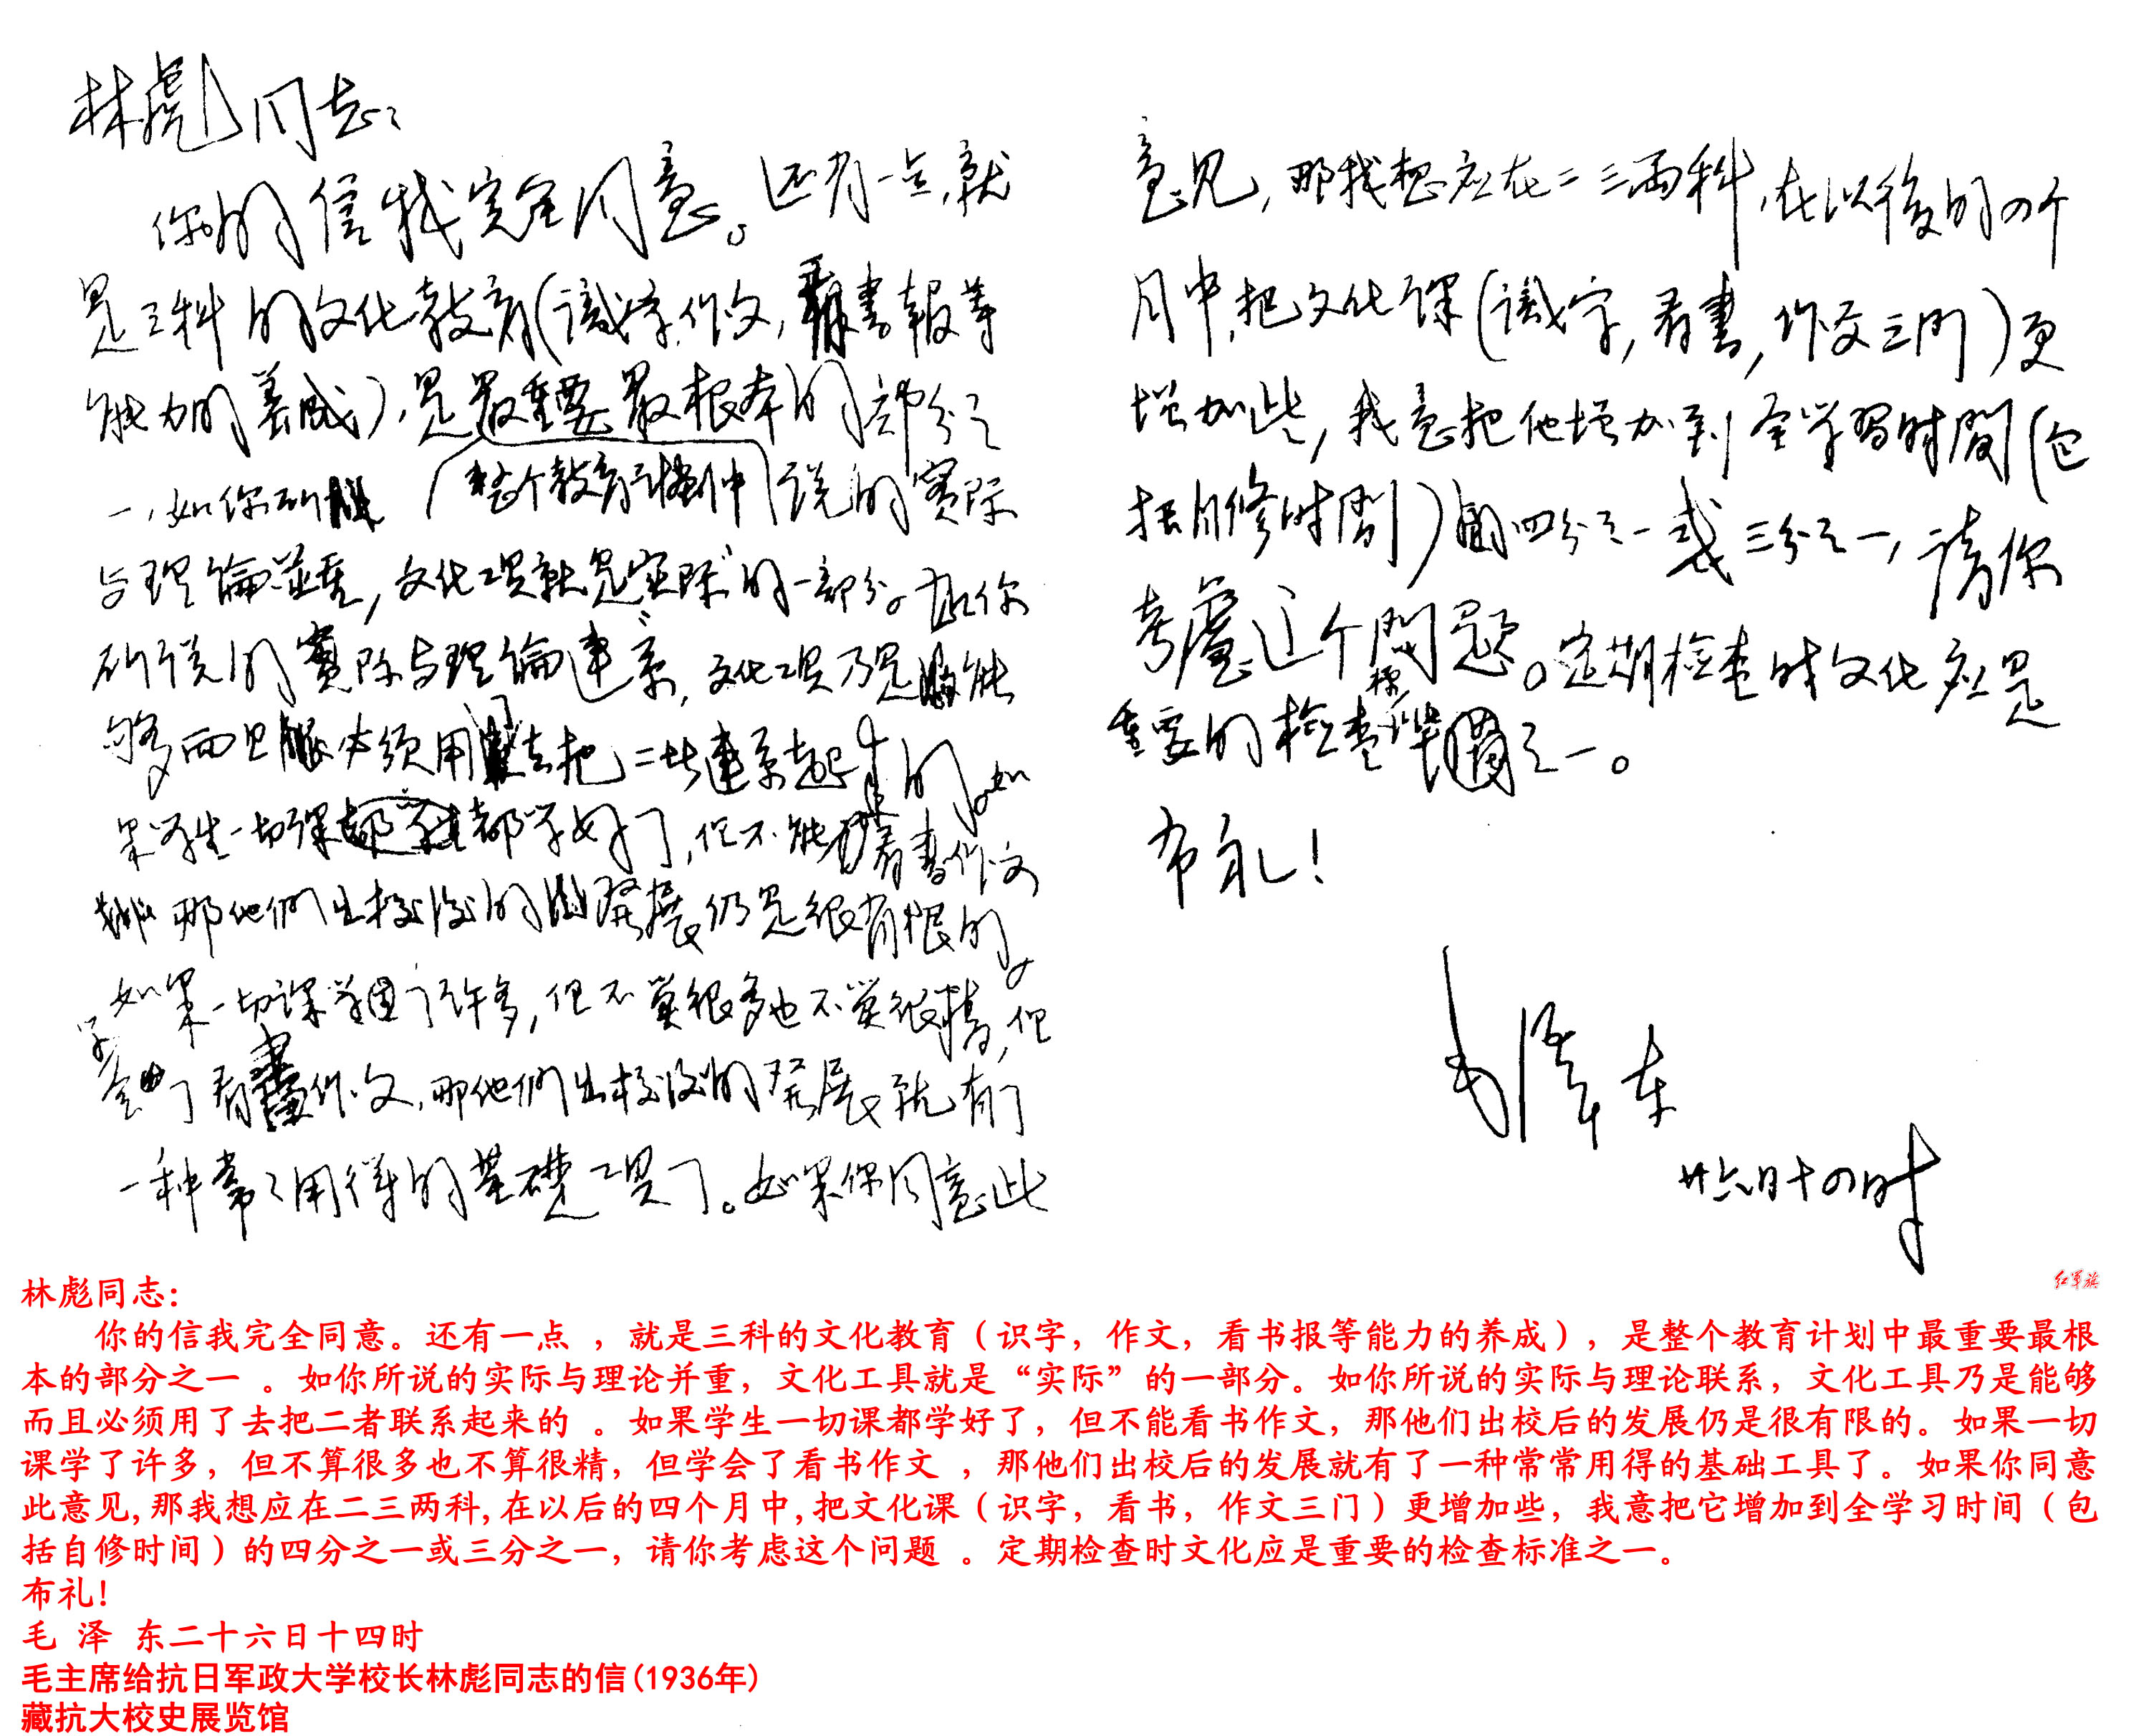 林彪同志：
你的信我完全同意。还有一点，就
是三科的文化教育（識字，作文，看書報等
能力的养成），是最重要最根本的部分之
一，如你所
整个教育计划中
说的實际
与理論並重，文化工具就是“实际”的一部分。如你
所说的實际与理論連系，文化工具乃是能
够而且必须用了去把二者連系起来的。如
果学生一切课都学好了，但不能看書作文
那他們出校後的發展仍是很有限的。
如果一切课学了许多，但不算很多也不算很精，但
学会了看書作文，那他們出校後的發展就有了
一种常々用得的基礎工具了。如果你同意此
意见，那我想应在二三两科，在以後的四个
月中，把文化课（識字，看書，作文三門）更
增加些，我意把他增加到全学習时間（包
括自修时間）的四分之一或三分之一，请你
考慮这个問題。定期检查时文化应是
重要的检查标准之一。
布礼！
毛澤东
廿六日十四时
红军旗
林彪同志：
你的信我完全同意。还有一点 ，就是三科的文化教育（识字，作文，看书报等能力的养成），是整个教育计划中最重要最根
本的部分之一 。如你所说的实际与理论并重，文化工具就是“实际”的一部分。如你所说的实际与理论联系，文化工具乃是能够
而且必须用了去把二者联系起来的 。如果学生一切课都学好了，但不能看书作文，那他们出校后的发展仍是很有限的。如果一切
课学了许多，但不算很多也不算很精，但学会了看书作文 ，那他们出校后的发展就有了一种常常用得的基础工具了。如果你同意
此意见，那我想应在二三两科，在以后的四个月中，把文化课（识字，看书，作文三门）更增加些，我意把它增加到全学习时间（包
括自修时间）的四分之一或三分之一，请你考虑这个问题 。定期检查时文化应是重要的检查标准之一。
布礼！
毛 泽 东二十六日十四时
毛主席给抗日军政大学校长林彪同志的信(1936年)
藏抗大校史展览馆